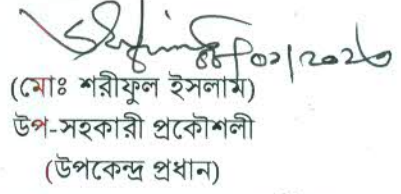 ০১/২০২৩
(মোঃ শরীফুল ইসলাম)
উপ-সহকারী প্রকৌশলী
(উপকেন্দ্র প্রধান)